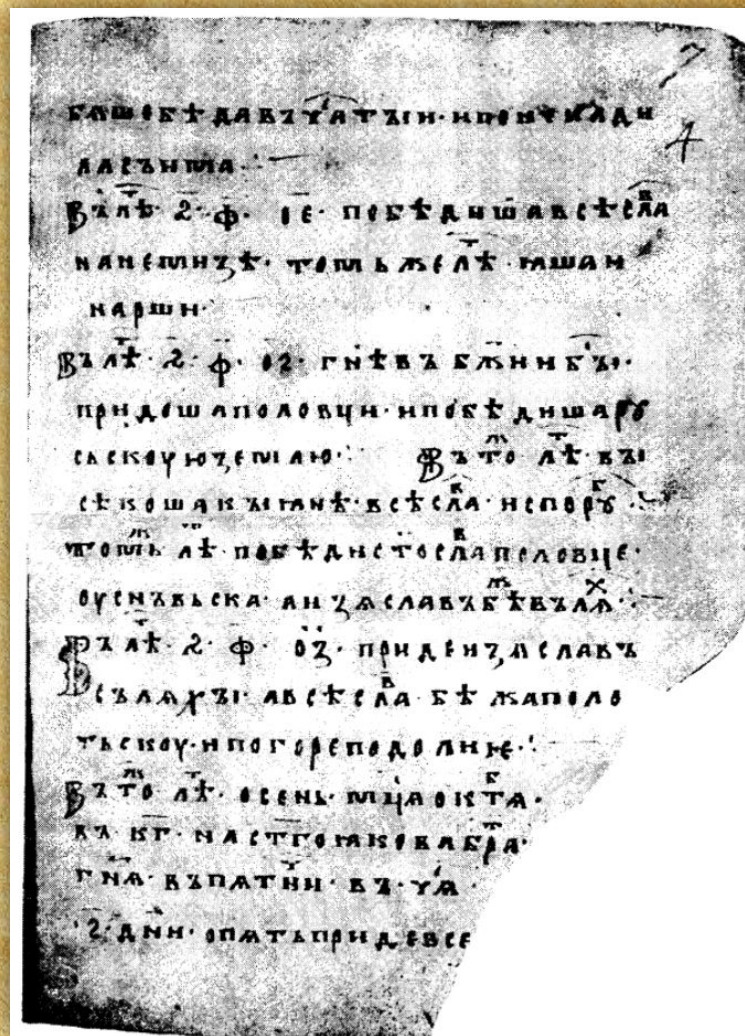 баше обѣда въ ч҃а тъи · и поиѥмлади
ла съ нима ·:—
Въ лѣ҃ · ѕ · ф · ое · побѣдиша всѣсла҃в
на немизѣ · томь же лѣ҃т · ꙗша и
на рши ·
Въ лѣ҃т · ѕ · ф · оѕ · гнѣвъ бж҃ии бъі ·
придоша половци · и побѣдиша рꙋ
сьскоую землю ·: Въ то҃ж лѣ҃т · въі
сѣкоша къіꙗнѣ · всѣсла҃в · ис порꙋ҃б ·:
томь҃ж лѣ҃т · побѣди ст҃осла҃в половце ·
оу сн҃овьска · а изѧславъ бѣ҃ж въ лѧ҃х ·:—
Въ лѣ҃т · ѕ · ф · о҃з · приде изѧславъ
съ лѧхъі · а всѣсла҃в бѣжа поло
тьскоу · и погоре подолиѥ ·:
Въ то҃ж лѣ҃т · осень · мц҃ѧ октѧ҃б ·
въ к҃г · на ст҃го ꙗкова бра҃т ·
гн҃ѧ · въ пѧтн҃и · въ · ча҃ ·
ѕ · дн҃и · опѧть приде все